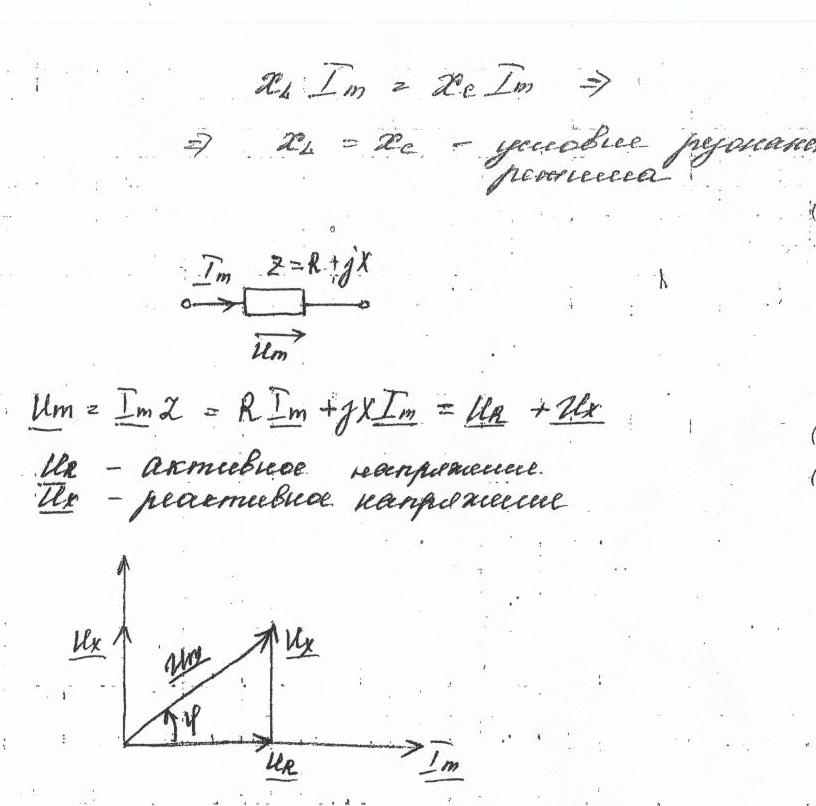 x_L I_m = x_C I_m ⇒
⇒ x_L = x_C – условие
режима
I_m Z = R + jX
U_m
U_m = I_m Z = R I_m + jX I_m = U_R + U_X
U_R – активное напряжение.
U_X – реактивное напряжение
U_X U_m U_X
φ
U_R I_m